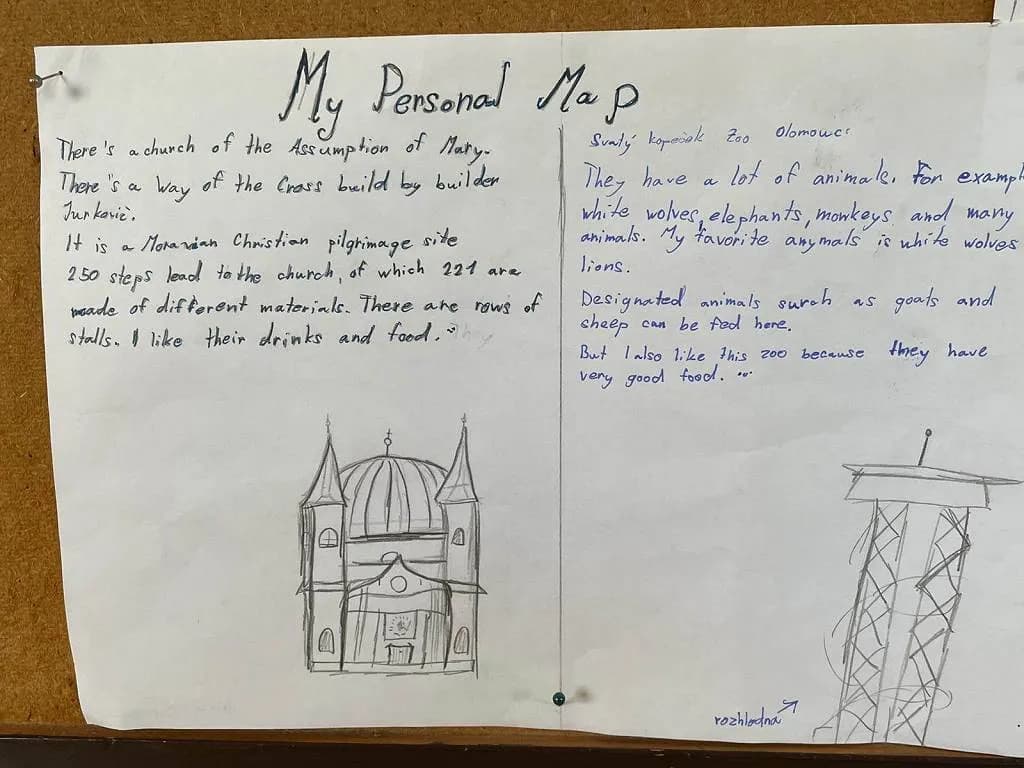 My Personal Map
There's a church of the Assumption of Mary.
There's a Way of the Cross build by builder
Jurkovič.
It is a Moravian Christian pilgrimage site
250 steps lead to the church, of which 221 are
made of different materials. There are rows of
stalls. I like their drinks and food.
Svatý kopeček Zoo Olomouc:
They have a lot of animals. For exampl
white wolves, elephants, monkeys and many
animals. My favorite anymals is white wolves
lions.
Designated animals surch as goats and
sheep can be fed here.
But I also like this zoo because they have
very good food.
rozhledna